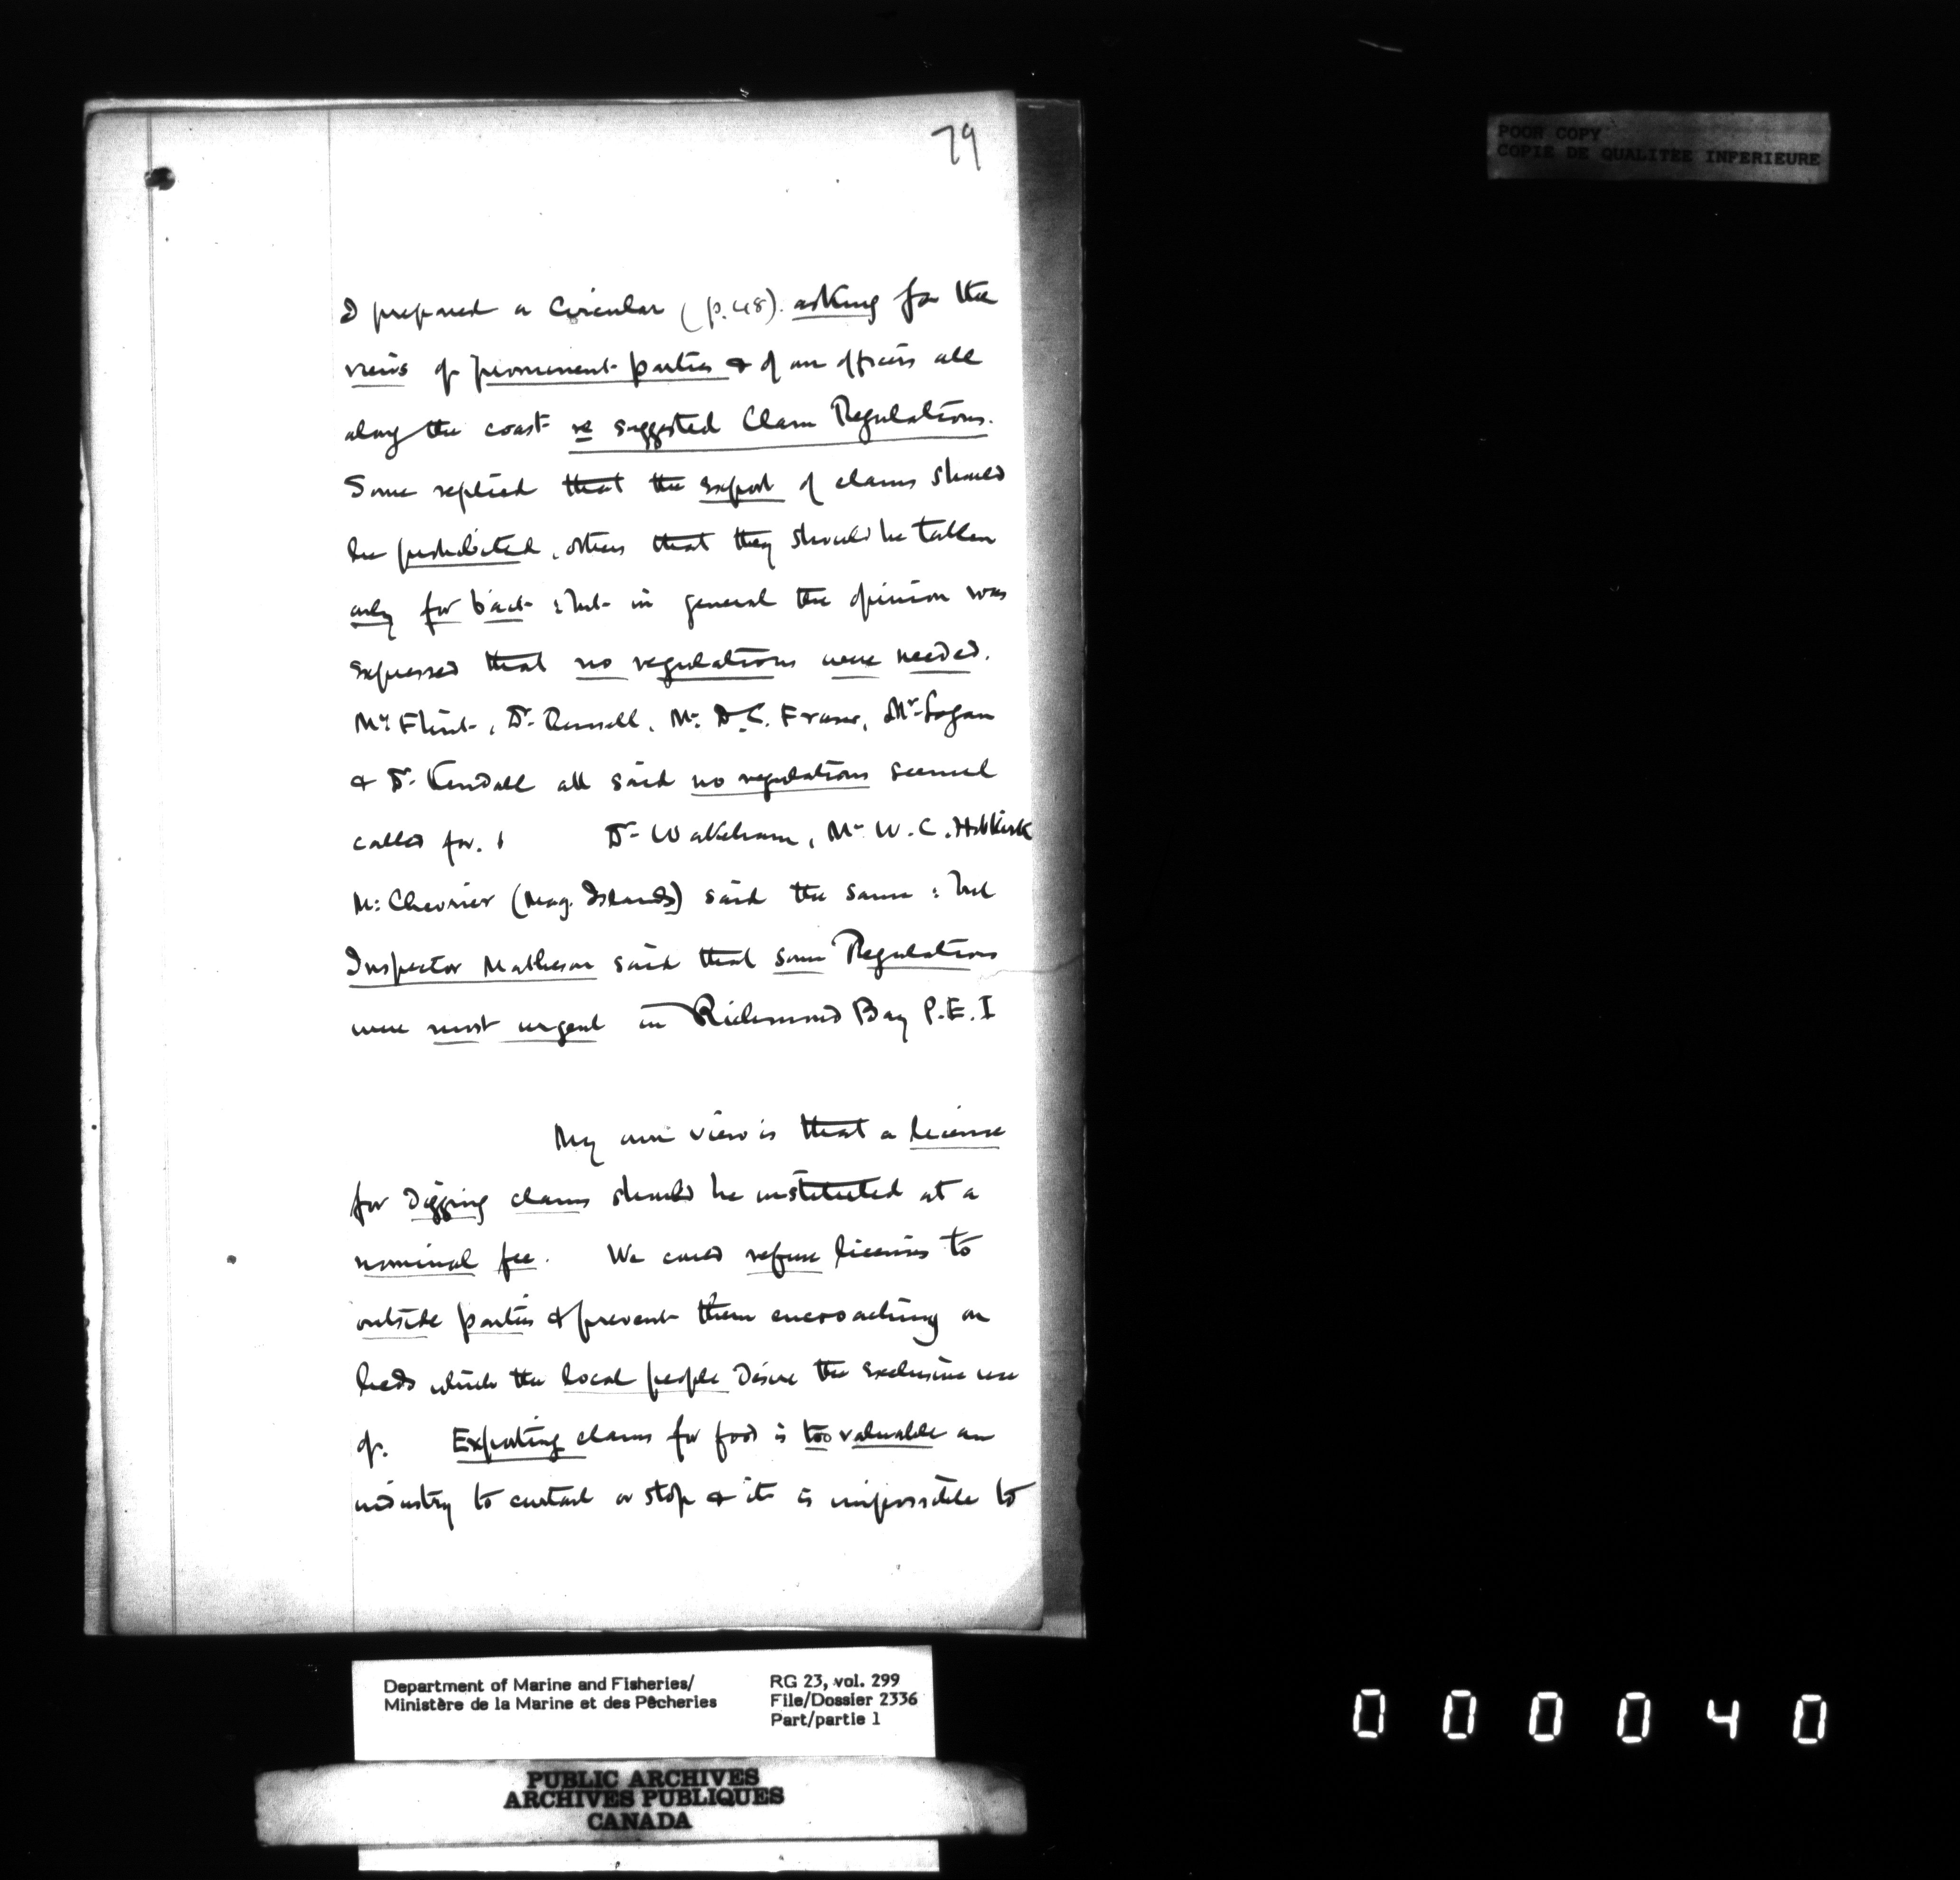 79
POOR COPY
COPIE DE QUALITEE INFERIEURE
I prepared a Circular (p.48). asking for the
views of prominent parties & of our officers all
along the coast re suggested Clam Regulations.
Some replied that the export of clams should
be prohibited, others that they should be taken
only for bait : but in general the opinion was
expressed that no regulations were needed.
Mr Flint, Dr. Russell, Mr. D.C. Fraser, Mr. Logan
& Dr. Kendall all said no regulations seemed
called for. Dr. Wakeham, Mr. W.C. Hobkirk
Mr. Chevrier (Mag. Islands) said the same : but
Inspector Matheson said that some Regulations
were most urgent in Richmond Bay P.E.I
My own view is that a license
for digging clams should be instituted at a
nominal fee. We could refuse licenses to
outside parties & prevent them encroaching on
beds which the local people desire the exclusive use
of. Exporting clams for food is too valuable an
industry to curtail or stop & it is impossible to
Department of Marine and Fisheries/
Ministère de la Marine et des Pêcheries
RG 23, vol. 299
File/Dossier 2336
Part/partie 1
PUBLIC ARCHIVES
ARCHIVES PUBLIQUES
CANADA
0 0 0 0 4 0